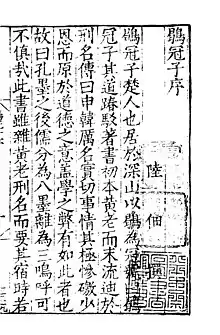 鶡冠子序
陸佃
鶡冠子楚人也居於深山以鶡為冠號曰鶡
冠子其道踳駮著書初本黃老而末流迪於
刑名傳曰申韓厲名實切事情其極慘礉少
恩而原於道德之意蓋學之弊有如此者也
故曰孔墨之後儒分為八墨離為三嗚呼可
不慎哉此書雖雜黃老刑名而要其宿時若